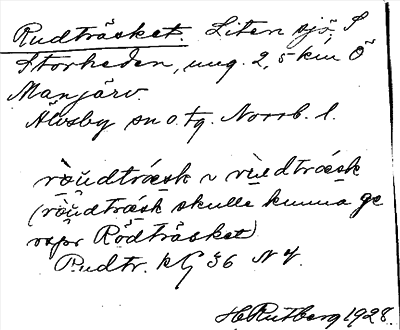 Rudträsket. Liten sjö, S
Storheden, ung. 2,5 km Ö
Manjärv.
Älvsby sn o. tg. Norrb. l.
ròu̯dtræsk ~ rùedtræsk
(ròu̯dtræsk skulle kunna ge
rspr Rödträsket)
Rudtr. kG 36 N 4.
H Rutberg 1928.